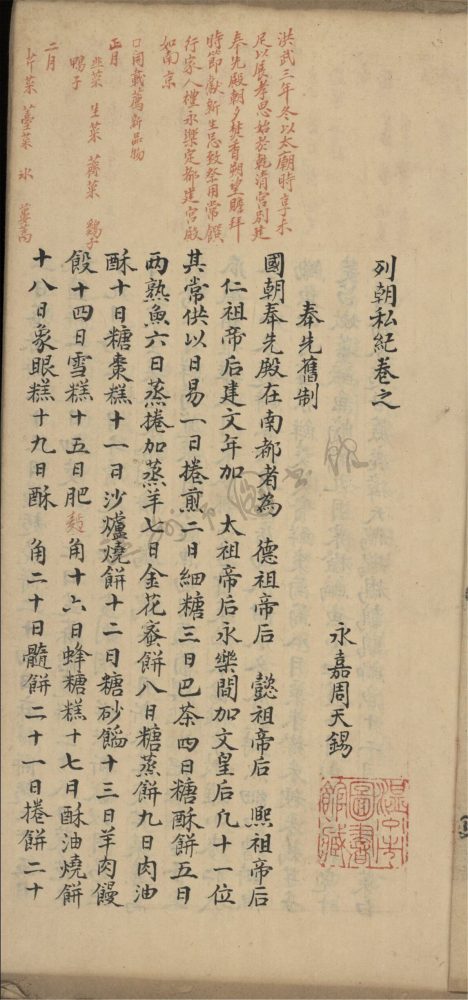 列朝私紀卷之
永嘉周天錫
奉先舊制
國朝奉先殿在南都者為 德祖帝后 懿祖帝后 熙祖帝后
仁祖帝后建文年加 太祖帝后永樂間加文皇后凡十一位
其常供以日易一日捲煎二日細糖三日巴茶四日糖酥餅五日
兩熟魚六日蒸捲加蒸羊七日金花蜜餅八日糖蒸餅九日肉油
酥十日糖棗糕十一日沙爐燒餅十二日糖砂餡十三日羊肉饅
餕十四日雪糕十五日肥麪角十六日蜂糖糕十七日酥油燒餅
十八日象眼糕十九日酥 角二十日髓餅二十一日捲餅二十
洪武三年冬以太廟時享未
足以展孝思始於乾清宮別建
奉先殿朝夕焚香朔望瞻拜
時節獻新生忌致祭用常饌
行家人禮永樂定都建宮殿
如南京
口開載薦新品物
正月
韭菜 生菜 薺菜 鷄子
鴨子
二月
芹菜 薹菜 氷 蔞蒿
溫州市
圖書
館藏